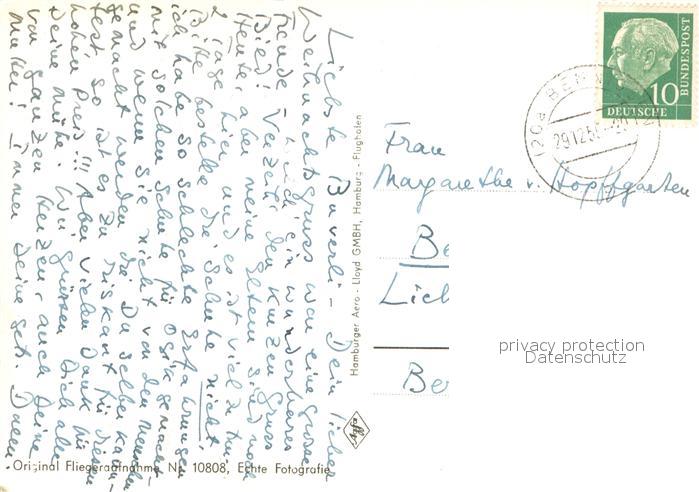 Liebste Buverli - Dein lieber
Weihnachtsgruss war eine grosse
Freude - wirklich ein wunderbares
Bild! Verzeih den kurzen Gruss
heute, aber meine Eltern sind noch
2 Tage hier und es ist viel zu tun.
Bitte bestelle die Schuhe nicht!
ich habe so schlechte Erfahrungen
mit solchen Schuhe für Ostik gemacht
und wenn sie nicht von dem Menschen
gemacht werden, die Du selber kann-
test so ist es zu riskant für diesen
hohen Preis!!! Aber vielen Dank für
Deine Mühe. Wir grüssen Dich alle
von ganzem Herzen, auch Deine
Mutter! Immer Deine get.
Hamburger Aero - Lloyd GMBH, Hamburg - Flughafen
Original Fliegeraufnahme Nr. 10808, Echte Fotografie
Agfa
DEUTSCHE BUNDESPOST
10
(20a
29.12.5
Frau
Margarethe v. Hopffgarten
Be
Lich
Ber
privacy protection
Datenschutz